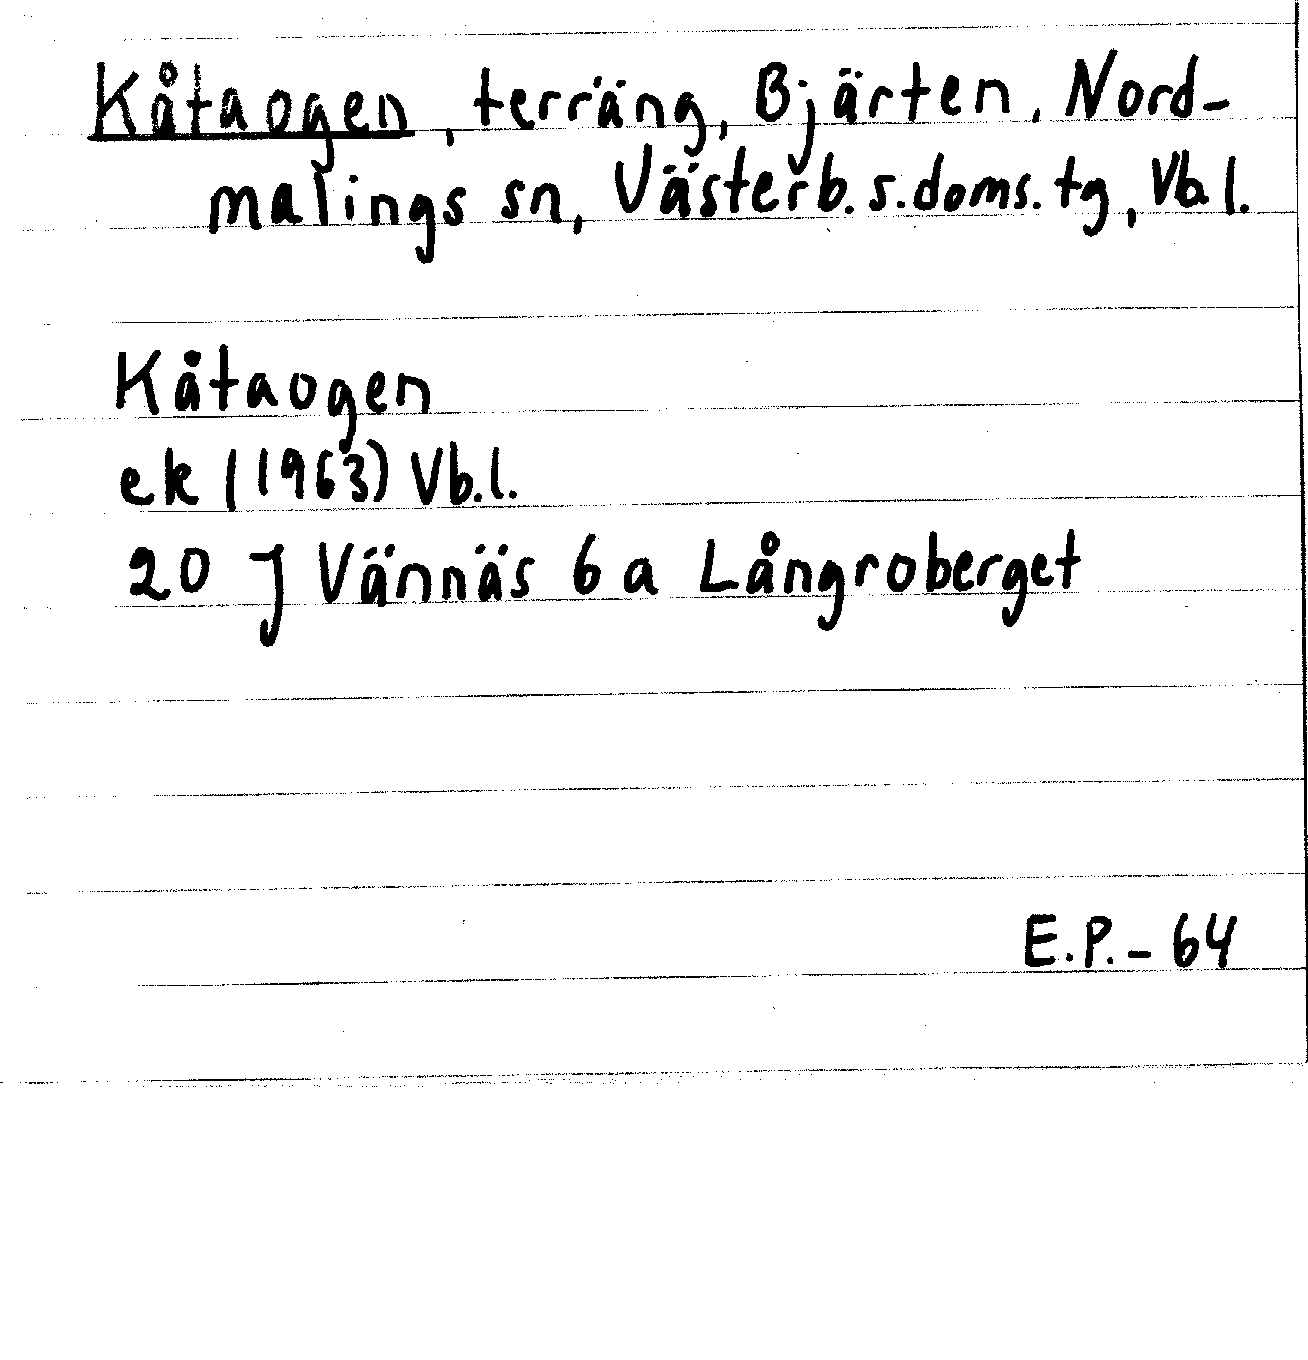 Kåtaogen, terräng, Bjärten, Nord-
malings sn, Västerb. s. doms. tg, Vb. l.
Kåtaogen
ek (1963) Vb. l.
20 J Vännäs 6 a Långroberget
E.P. - 64